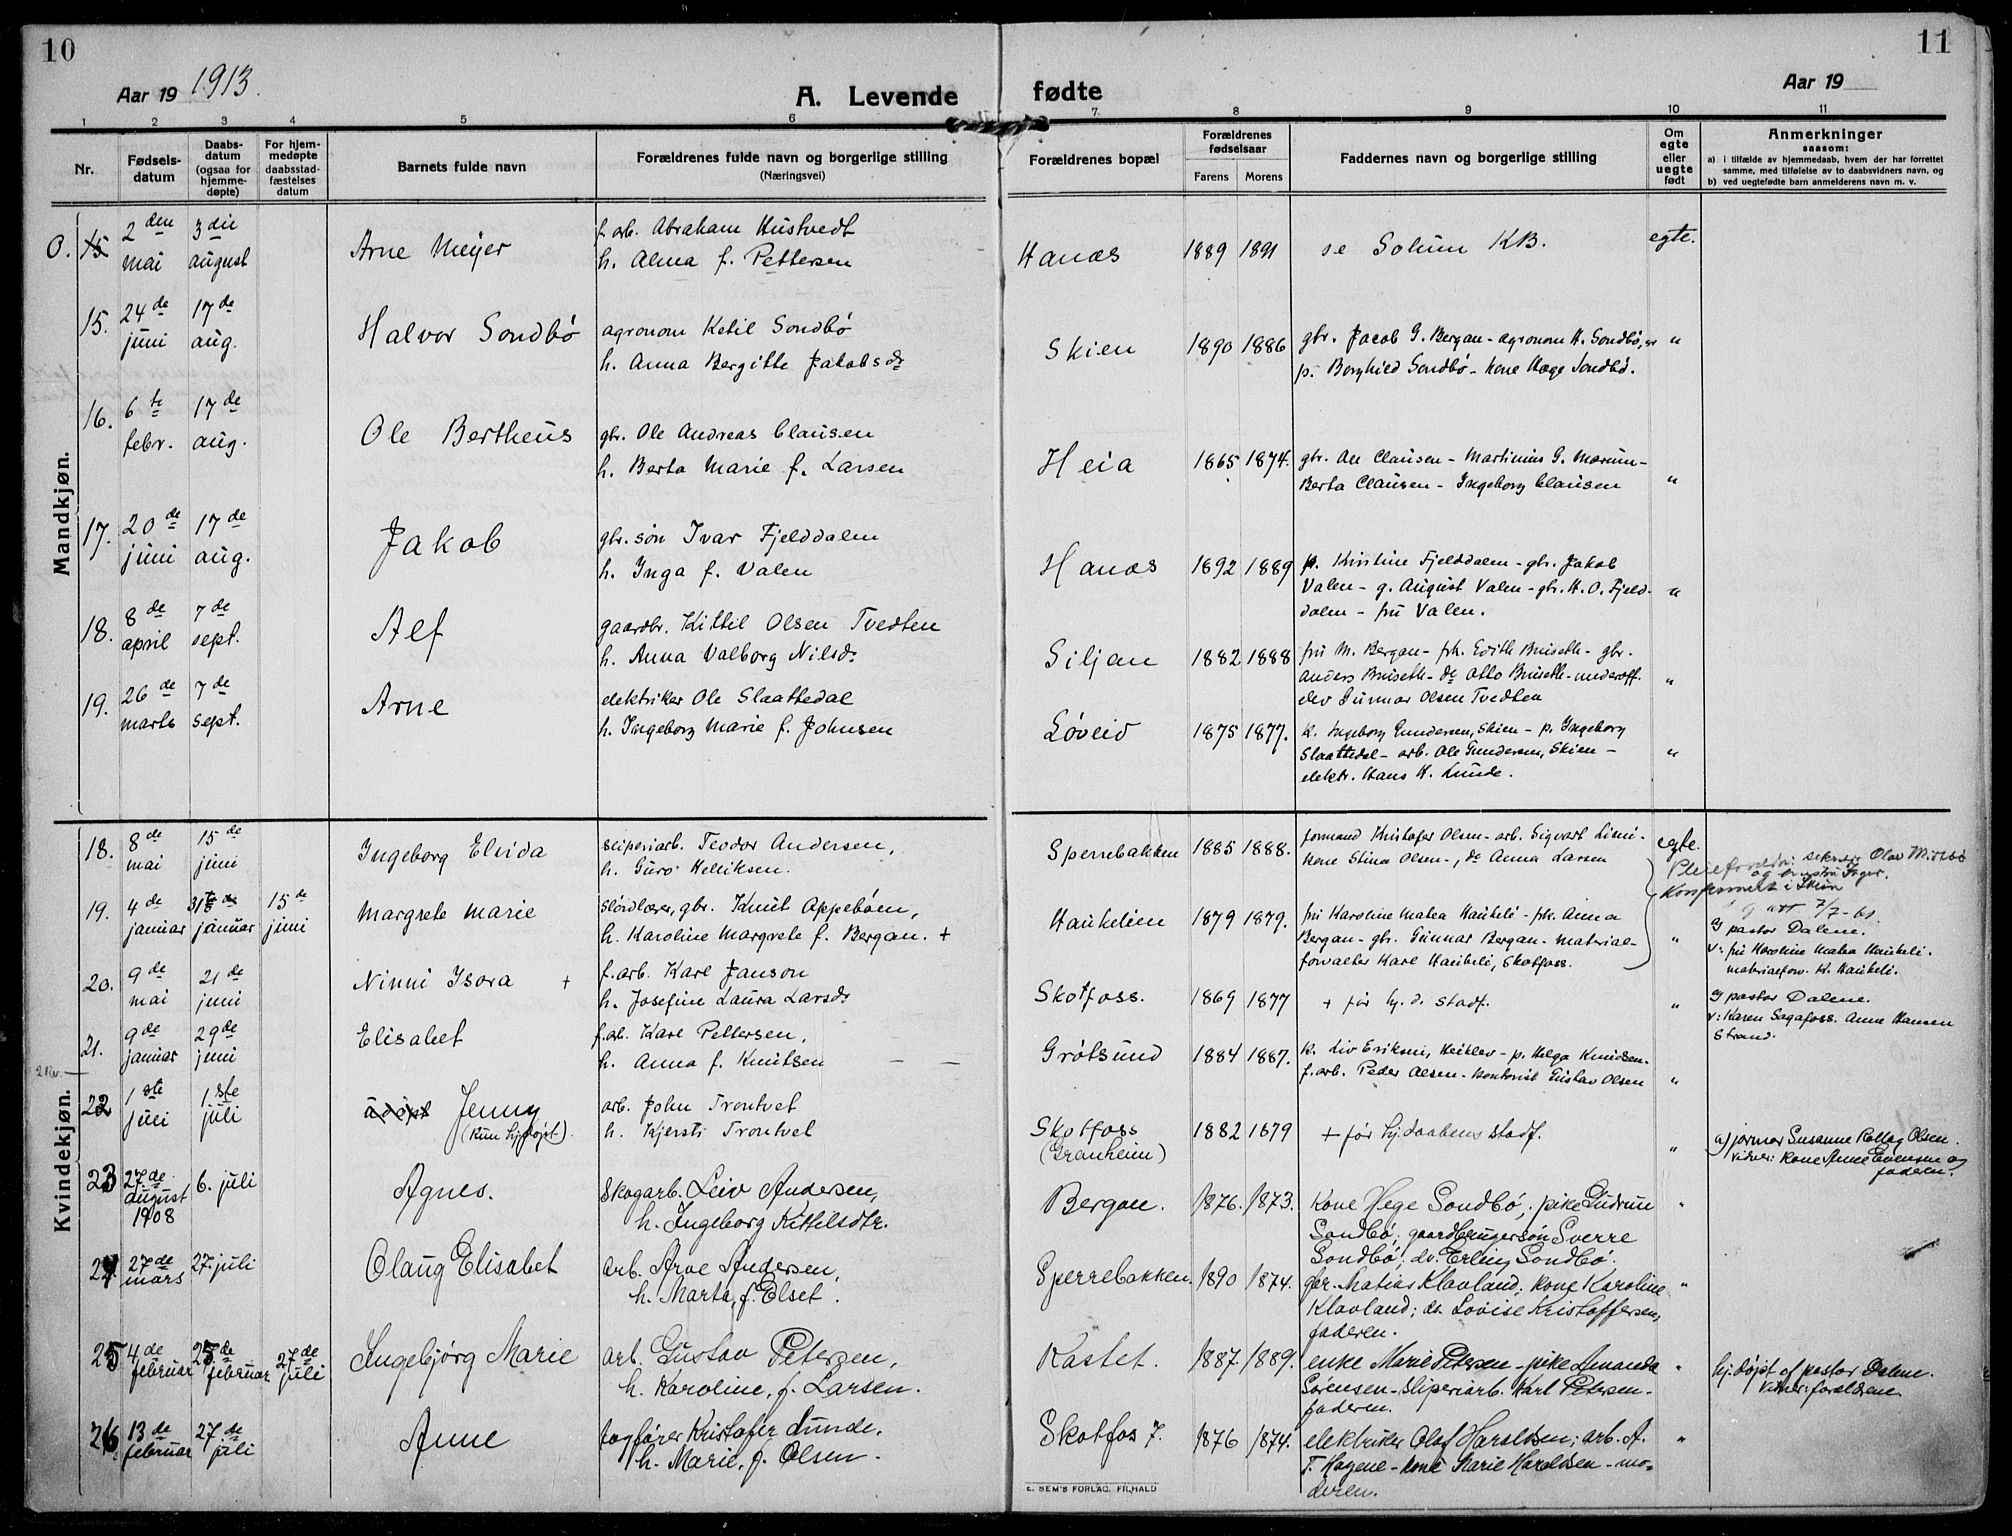 10
11
Aar 19 1913.
A. Levende fødte
Aar 19
1 2 3 4 5 6 7. 8 9 10 11
Nr.
Fødsels-
datum
Daabs-
datum
(ogsaa for
hjemme-
døpte)
For hjem-
medøpte
daabsstad-
fæstelses
datum
Barnets fulde navn
Forældrenes fulde navn og borgerlige stilling
(Næringsvei)
Forældrenes bopæl
Forældrenes
fødselsaar
Farens Morens
Faddernes navn og borgerlige stilling
Om
egte
eller
uegte
født
Anmerkninger
saasom:
a) i tilfælde av hjemmedaab, hvem der har forrettet
samme, med tilføielse av to daabsvidners navn, og
b) ved uegtefødte barn anmelderens navn m. v.
Mandkjøn.
O. 15 2 den 3 die f. arb. Abraham Hustvedt
mai august Arne Meyer h. Alma f. Pettersen Hanæs 1889 1891 se Solum KB. egte.
15. 24 de 17 de
juni aug. Halvor Sondbö agronom Ketil Sondbö
h. Anna Bergitte Jakobsd. Skien 1890 1886 gbr. Jacob G. Bergan - agronom H. Sondbö, "
p. Borghild Sondbö - kone Hæge Sondbö.
16. 6 te 17 de
febr. aug. Ole Bertheus gbr. Ole Andreas Clausen
h. Berta Marie f. Larsen Heia 1865 1874. gbr. Ole Clausen - Martinius G. Mærum -
Berta Clausen - Ingeborg Clausen "
17. 20 de 17 de
juni aug. Jakob gbr. søn Ivar Fjelddalen
h. Inga f. Valen Hanæs 1892 1889 p. Kristine Fjelddalen - gbr. Jakob
Valen - g. August Valen - gbr. H. O. Fjeld- "
dalen - fru Valen.
18. 8 de 7 de
april sept. Alf gaardbr. Kittil Olsen Tvedten
h. Anna Valborg Nilsd. Siljan 1882 1888 fru M. Bergan - frk. Edith Bruseth - gbr.
Anders Bruseth - do Otto Bruseth - underoff. "
elev Gunnar Olsen Tvedten
19. 26 de 7 de
marts sept. Arne elektriker Ole Slaattedal
h. Ingeborg Marie f. Johnsen Løveid 1875 1877. k. Ingeborg Gundersen, Skien - p. Ingeborg
Slaattedal - arb. Ole Gundersen, Skien - "
elektr. Hans H. Lunde.
Kvindekjøn.
18. 8 de 15 de
mai juni Ingeborg Elvida sliperiarb. Teodor Andersen,
h. Guro Helliksen. Sperrebakken 1885 1888. formand Kristofer Olsen - arb. Sigvart Limi - egte.
kone Stina Olsen -, do Anna Larsen
19. 4 de 31te 15 de
januar januar juni Margrete Marie sløidlærer, gbr. Knut Appebøen,
h. Karoline Margrete f. Bergan. + Haukelien 1879 1879. fru Karoline Matea Haukeli - frk. Anna
Bergan - gbr. Gunnar Bergan - material- "
forvalter Karl Haukeli, Skotfoss.
Pleieforeldr: sekretær Olav
og hustru Inger.
Konfirmert i Skien
7/7-61.
pastor Dalene.
v: fru Karoline Matea Haukeli.
materialforv. K. Haukeli.
20. 9 de 21 de
mai juni Ninni Isora + f. arb. Karl Janson
h. Josefine Laura Larsd. Skotfoss. 1869 1877 + før hj. d. stadf. "
pastor Dalene.
v: Karen Sagafoss. Anne Hansen
Strand.
21. 9 de 29 de
januar juni Elisabet f. arb. Karl Pettersen,
h. Anna f. Knutsen Grötsund 1884 1887. k. Liv Eriksen, Heiklev - p. Helga Knudsen -
f. arb. Peder Olsen - kontorist Gustav Olsen "
22 1 ste 1. ste
juli juli Jenny
(kun hj.døpt). arb. John Trontvet
h. Kjersti Trontvet Skotfoss
(Granheim) 1882 1879 + før hj. daabens stadf. "
a) jormor Susanne Rollag Olsen.
vidner: kone Anne Evensen og
faderen.
23 27 de
august
1908 6. juli Agnes. Skogarb. Leiv Andersen,
h. Ingeborg Kittilsdtr. Bergan. 1876. 1873. Kone Hege Sondbö; pike Gudrun "
Sondbö; gaardbrugersøn Sverre
Sondbö; do. Erling Sondbö.
24. 27 de
mars 27. juli Olaug Elisabet arb. Arve Andersen,
h. Marta, f. Elset. Sperrebakken. 1890 1874. gbr. Matias Klovland; kone Karoline "
Klovland; do. Lovise Kristoffersen,
faderen.
25 4 de
februar 25 de
februar 27 de
juli Ingebjörg Marie arb. Gustav Petersen,
h. Karoline, f. Larsen. Kastet. 1887. 1889. enke Marie Petersen - pike Amanda "
Sørensen - sliperiarb. Karl Petersen -
faderen.
hj. døpt af pastor Dalene.
vidner: forældrene
26 13 de
februar 27 de
juli Anne togfører Kristofer Lunde,
h. Marie, f. Olsen. Skotfos 7. 1876 1874. elektriker Olaf Haraldsen; arb. A. "
T. Hagene - kone Marie Haraldsen - mo-
deren.
E. SEM'S FORLAG, FR.HALD